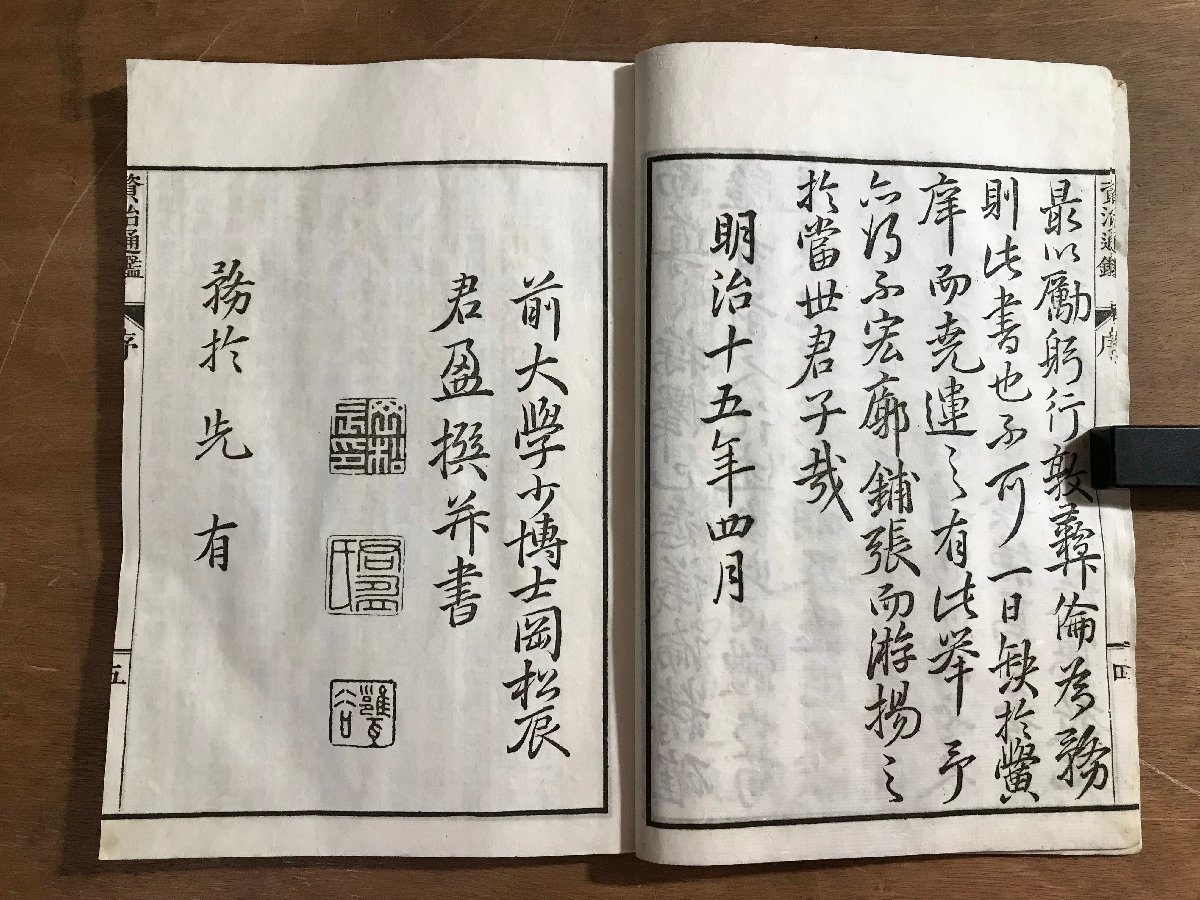 資治通鑑
序
四
最以勵躬行敦彝倫為務
則此書也不可一日缺於黌
庠而堯運之有此舉予
亦得不宏廓鋪張而游揚之
於當世君子哉
明治十五年四月
前大學少博士岡松辰
君盈撰并書
岡松
辰印
君盈
氏
甕
谷
務於先有
資治通鑑
序
五